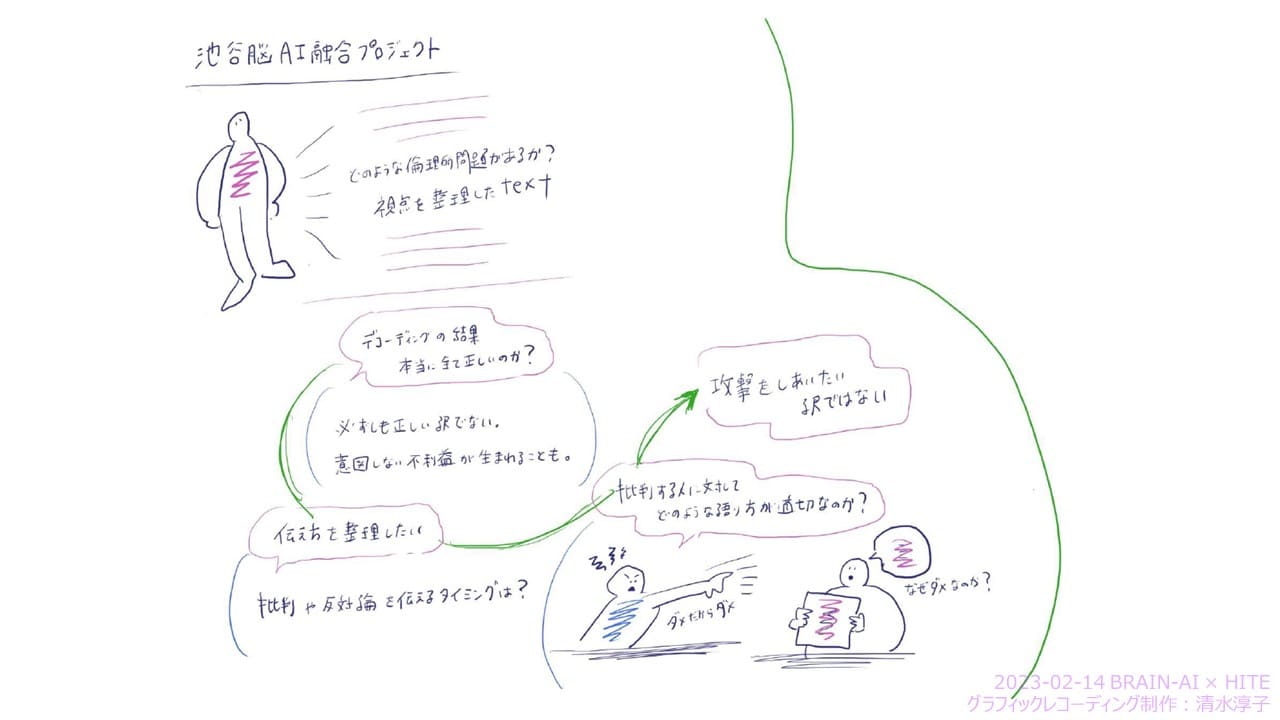 池谷脳AI融合プロジェクト
どのような倫理的問題があるか?
視点を整理したtext
デコーディングの結果
本当に全て正しいのか?
必ずしも正しい訳でない。
意図しない不利益が生まれることも。
伝え方を整理したい
批判や反対論を伝えるタイミングは?
批判する人に対して
どのような語り方が適切なのか?
攻撃をしあいたい
訳ではない
ダメだからダメ
なぜダメなのか?
2023-02-14 BRAIN-AI × HITE
グラフィックレコーディング制作:清水淳子